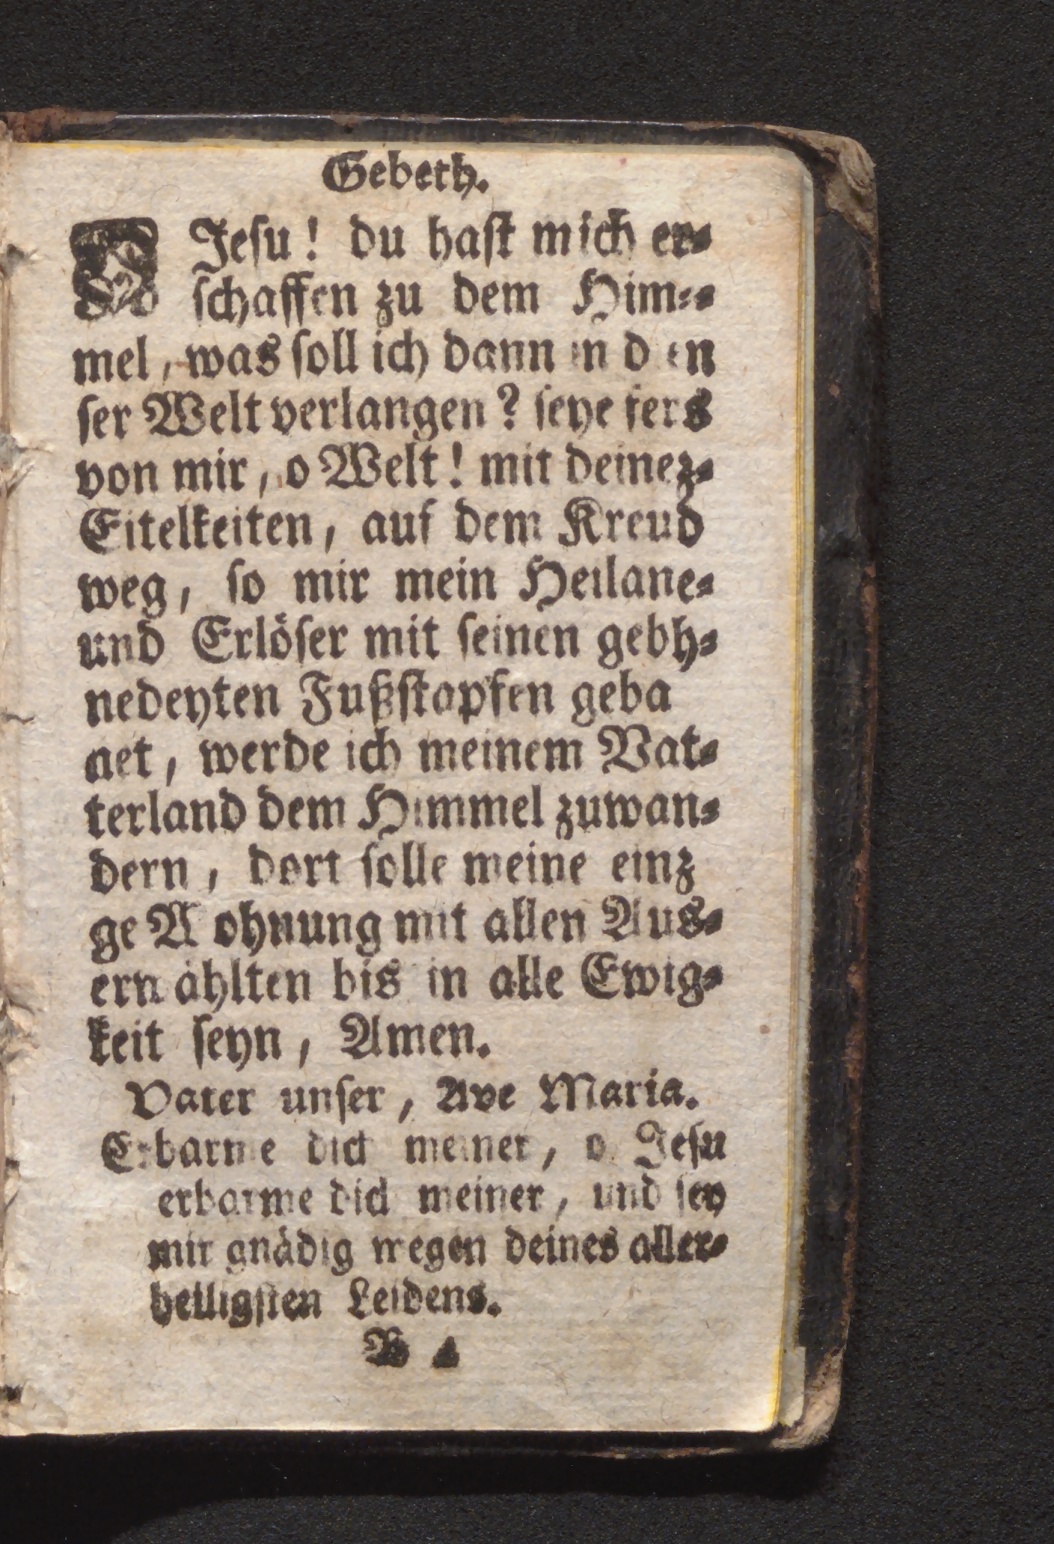 Gebeth.
O Jesu! du hast mich er-
schaffen zu dem Him-
mel, was soll ich dann in d en
ser Welt verlangen? seye fers
von mir, o Welt! mit deinez-
Eitelkeiten, auf dem Kreud
weg, so mir mein Heilane-
und Erlöser mit seinen gebh-
nedeyten Fußstapfen geba
net, werde ich meinem Vat-
terland dem Himmel zuwan-
dern, dort solle meine einz
ge Wohnung mit allen Aus-
erwählten bis in alle Ewig-
keit seyn, Amen.
Vater unser, Ave Maria.
Erbarme dich meiner, o Jesu
erbarme dich meiner, und sey
mir gnädig wegen deines aller-
heiligsten Leidens.
B